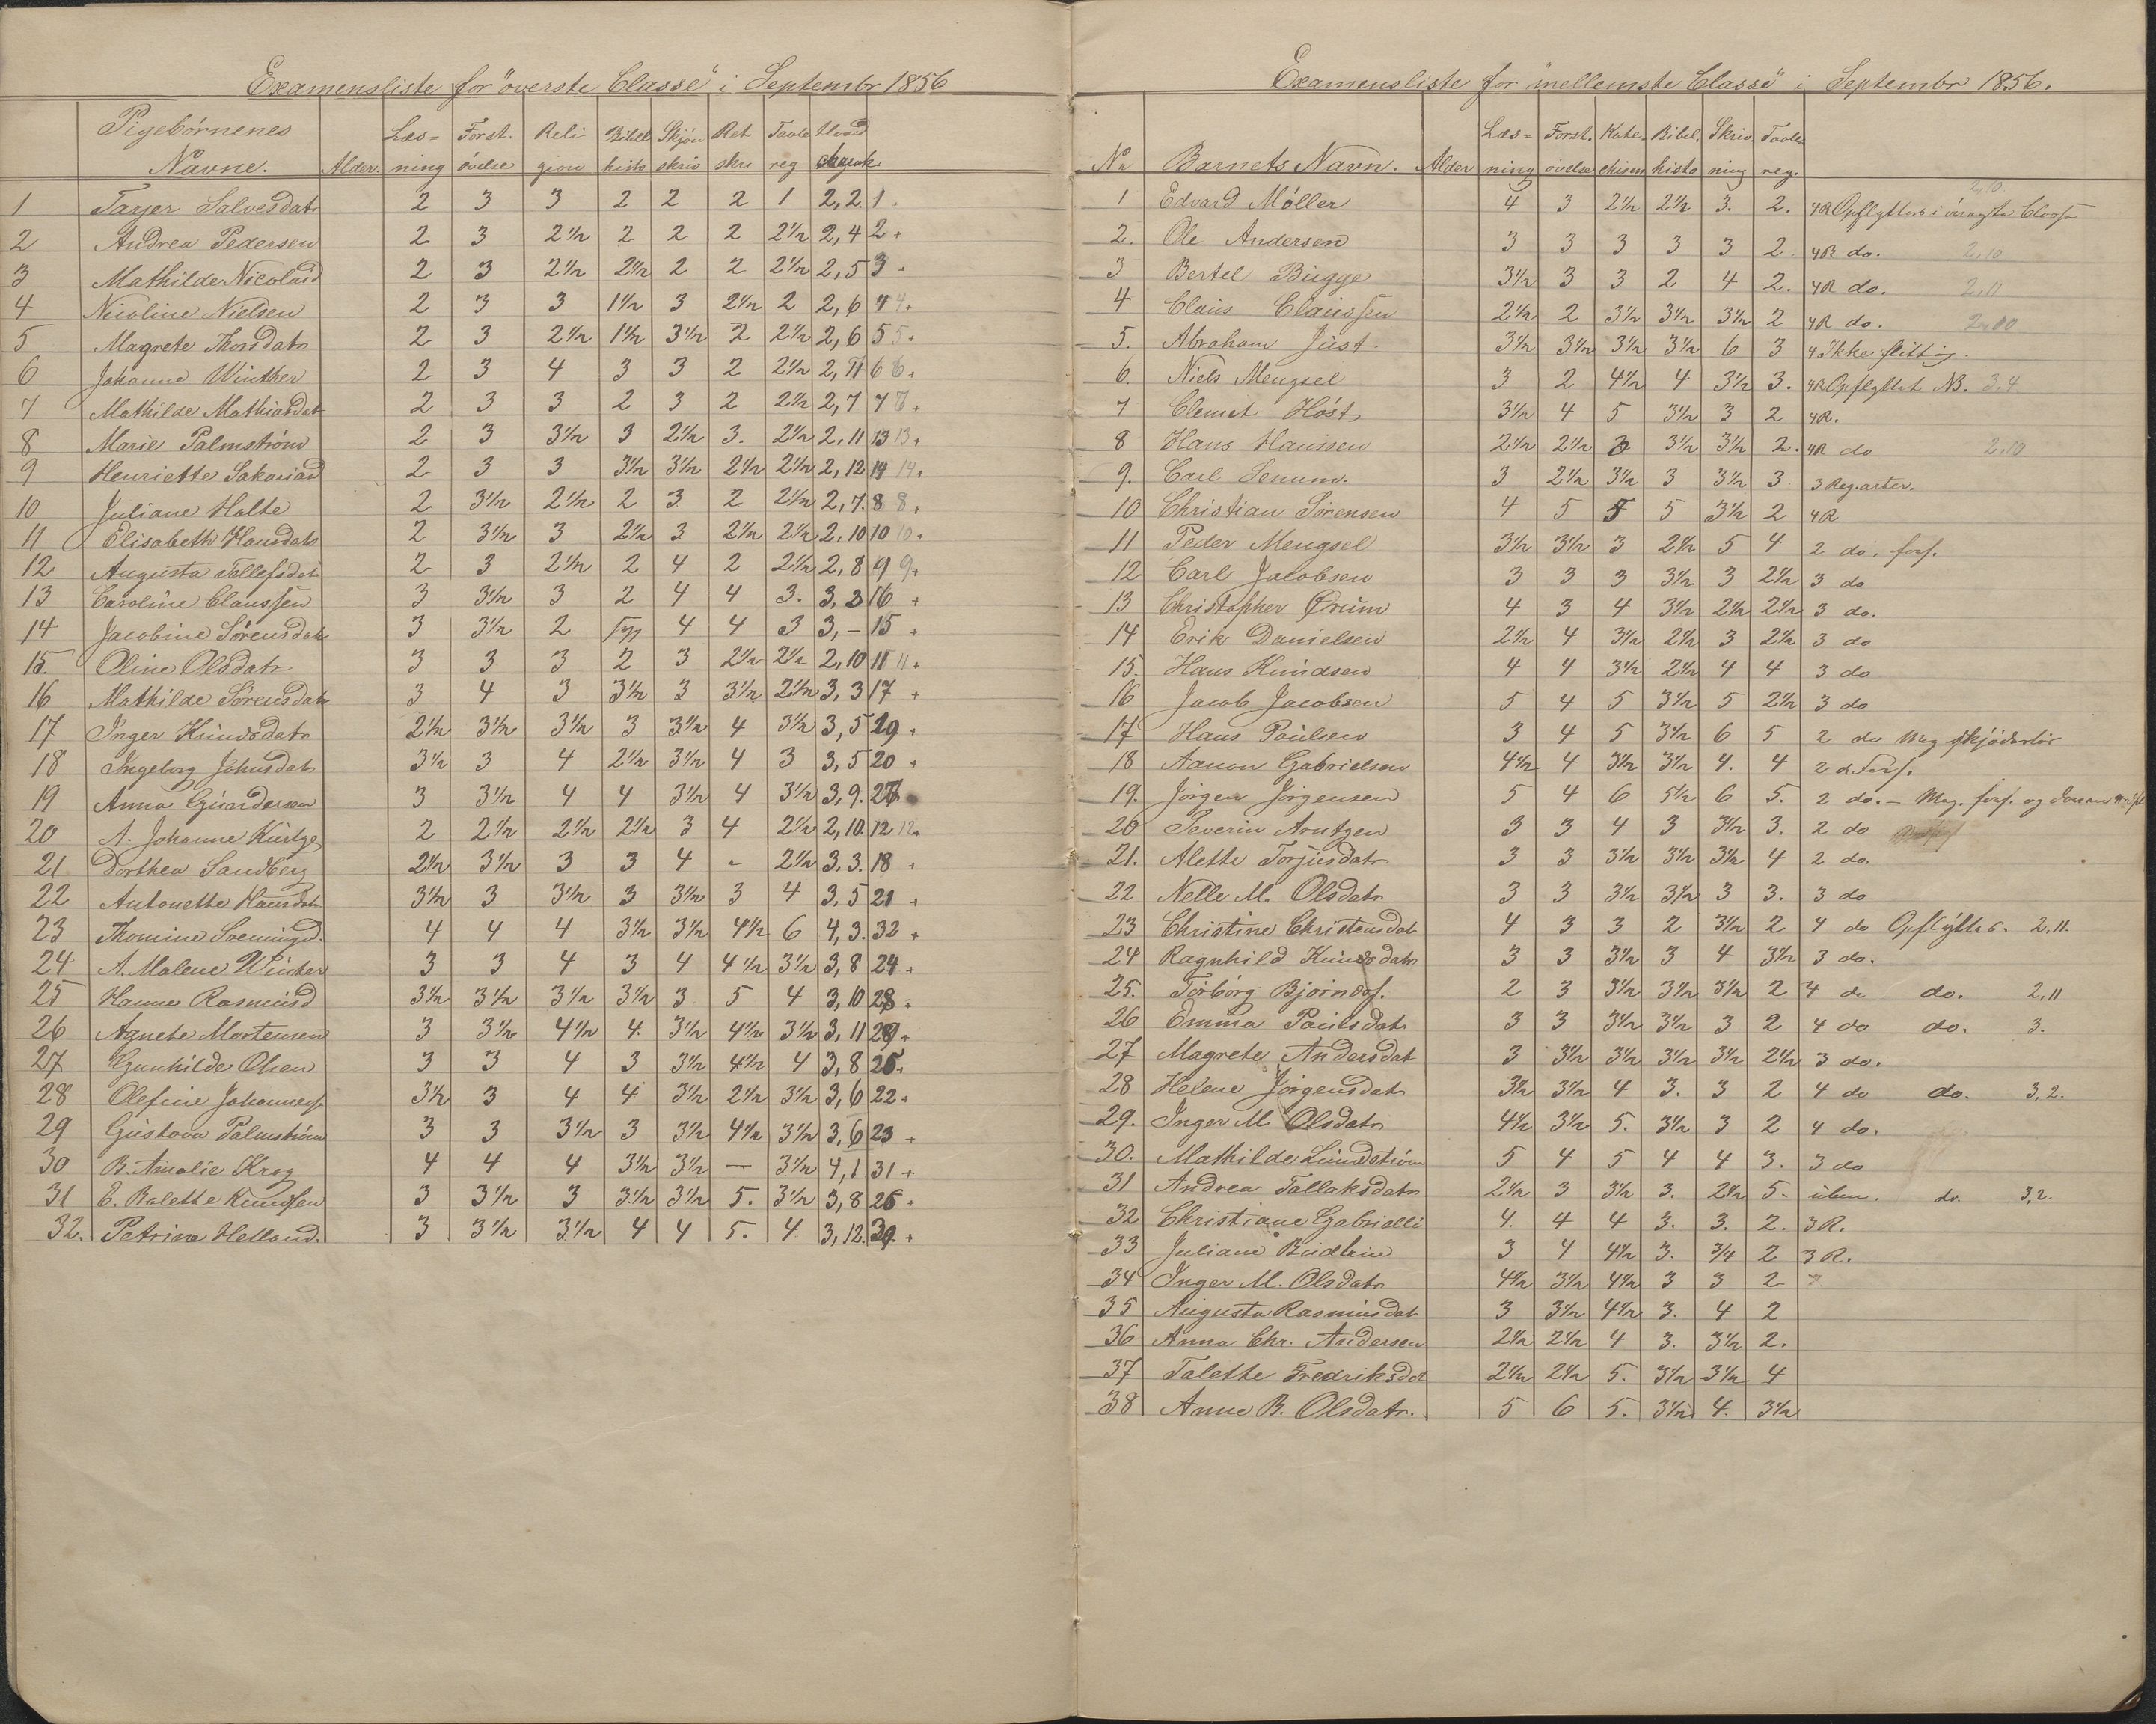 Examensliste for "överste Classe" i Septembr 1856
Pigebörnenes Læs= Forst. Reli Bibel Skjön Ret Tavle Hoved
Navne. Alder. ning övelse gion histo skriv skr reg charak
1 Tarjer Salvesdatr 2 3 3 2 2 2 1 2,2 1.
2 Andrea Pedersen 2 3 2½ 2 2 2 2½ 2,4 2+
3 Mathilde Nicolaisd 2 3 2½ 2½ 2 2 2½ 2,5 3.
4 Nicoline Nielsen 2 3 3 1½ 3 2½ 2 2,6 4 4.
5 Magrete Thorsdatr 2 3 2½ 1½ 3½ 2 2½ 2,6 5 5+
6 Johanne Winther 2 3 4 3 3 2 2½ 2,7 6 6+
7 Mathilde Mathiasdat 2 3 3 2 3 2 2½ 2,7 7 7+
8 Marie Palmström 2 3 3½ 3 2½ 3. 2½ 2,11 13 13+
9 Henriette Sakariasd 2 3 3 3½ 3½ 2½ 2½ 2,12 14 14+
10 Juliane Holte 2 3½ 2½ 2 3 2 2½ 2,7. 8 8+
11 Elisabeth Hansdatr 2 3½ 3 2½ 3 2½ 2½ 2,10 10 10+
12 Augusta Tallefsdat 2 3 2½ 2 4 2 2½ 2,8 9 9+
13 Caroline Claussen 3 3½ 3 2 4 4 3. 3,2 16 +
14 Jacobine Sörensdat 3 3½ 2 Syg 4 4 3 3,– 15 +
15. Oline Olsdatr 3 3 3 2 3 2½ 2½ 2,10 11 11+
16 Mathilde Sörensdatr 3 4 3 3½ 3 3½ 2½ 3,3 17 +
17 Inger Knudsdatr 2½ 3½ 3½ 3 3½ 4 3½ 3,5 19+
18 Ingeborg Johnsdatr 3½ 3 4 2½ 3½ 4 3 3,5 20 +
19 Anna Gundersen 3 3½ 4 4 3½ 4 3½ 3,9. 27
20 A. Johanne Kurtze 2 2½ 2½ 2½ 3 4 2½ 2,10. 12 12+
21 Dorthea Sandberg 2½ 3½ 3 3 4 - 2½ 3,3. 18 +
22 Antonette Hansdat 3½ 3 3½ 3 3½ 3 4 3,5 21 +
23 Thomine Sveningsd. 4 4 4 3½ 3½ 4½ 6 4,3. 32 +
24 A. Malene Wincher 3 3 4 3 4 4½ 3½ 3,8 24+
25 Hanne Rasmusd 3½ 3½ 3½ 3½ 3 5 4 3,10 28+
26 Agnete Mortensen 3 3½ 4½ 4. 3½ 4½ 3½ 3,11 29+
27 Gunhilde Olsen 3 3 4 3 3½ 4½ 4 3,8 25+
28 Olefine Johannes 3½ 3 4 4 3½ 2½ 3½ 3,6 22+
29 Gustava Palmström 3 3 3½ 3 3½ 4½ 3½ 3,6 23 +
30 B. Amalie Krog 4 4 4 3½ 3½ — 3½ 4,1 31 +
31 E. Balette Knudsen 3 3½ 3 3½ 3½ 5. 3½ 3,8 26 +
32. Petrine Helland. 3 3½ 3½ 4 4 5. 4 3,12. 30. +
Examensliste for "mellemste Classe" i Septembr 1856.
Læs= Forst. Kate- Bibel, Skriv. Tavle
No Barnets Navn. Alder ning övelse chism histo ning reg.
1 Edvard Möller 4 3 2½ 2½ 3. 2. 4R Opflyttes i överste Classe 2,10
2. Ole Andersen 3 3 3 3 3 2 4R do. 2,10
3 Bertel Bugge 3½ 3 3 2 4 2. 4R do. 2,11
4 Claus Claussen 2½ 2 3½ 3½ 3½ 2 4R do. 2,10
5. Abraham Just 3½ 3½ 3½ 3½ 6 3 4 Ikke flittig.
6. Niels Mengsel 3 2 4½ 4 3½ 3. 4R Opflyttet NB. 3,4
7 Clemet Höst 3½ 4 5 3½ 3 2 4R.
8 Hans Hansen 2½ 2½ 3 3½ 3½ 2. 4R do 2,10
9. Carl Senum. 3 2½ 3½ 3 3½ 3 3 Reg.arter.
10 Christian Sörensen 4 5 5 5 3½ 2 4R
11 Peder Mengsel 3½ 3½ 3 2½ 5 4 2 do. fors.
12 Carl Jacobsen 3 3 3 3½ 3 2½ 3 do
13 Christopher Örum 4 3 4 3½ 2½ 2½ 3 do.
14 Erik Danielsen 2½ 4 3½ 2½ 3 2½ 3 do
15. Hans Knudsen 4 4 3½ 2½ 4 4 3 do
16 Jacob Jacobsen 5 4 5 3½ 5 2½ 3 do
17 Hans Paulsen 3 4 5 3½ 6 5 2 do Meg skjödeslös
18 Aanon Gabrielsen 4½ 4 3½ 3½ 4. 4 2 d. Fors.
19. Jörgen Jörgensen 5 4 6 5½ 6 5. 2 do. – Meg. fors. og
20 Severin Arntzen 3 3 4 3 3½ 3. 2 do
21. Alette Torjusdatr 3 3 3½ 3½ 3½ 4 2 do.
22 Nelle M. Olsdatr 3 3 3½ 3½ 3 3. 3 do
23 Christine Christensdat 4 3 3 2 3½ 2 4 do Opflyttes. 2,11.
24 Ragnhild Knudsdatr 3 3 3½ 3 4 3½ 3 do.
25. Torborg Bjornsdf. 2 3 3½ 3½ 3½ 2 4 do do. 2,11
26 Emma Paulsdatr 3 3 3½ 3½ 3 2 4 do do. 3.
27 Magrete Andersdat 3 3½ 3½ 3½ 3½ 2½ 3 do.
28 Helene Jörgensdatr 3½ 3½ 4 3. 3 2 4 do do. 3,2.
29. Inger M. Olsdatr 4½ 3½ 5. 3½ 3 2 4 do.
30. Mathilde Lundström 5 4 5 4 4 3. 3 do
31 Andrea Tallaksdatr 2½ 3 3½ 3. 2½ 5. uben. do. 3,2.
32 Christiane Gabrielli 4. 4 4 3. 3. 2. 3R.
33 Juliane Budtrin 3 4 4½ 3. ¾ 2 3R.
34 Inger M. Olsdatr 4½ 3½ 4½ 3 3 2
35 Augusta Rasmusdat 3 3½ 4½ 3. 4 2
36 Anna Chr. Andersen 2½ 2½ 4 3. 3½ 2.
37 Talette Fredriksdat 2½ 2½ 5. 3½ 3½ 4
38 Anne B. Olsdatr. 5 6 5. 3½ 4. 3½